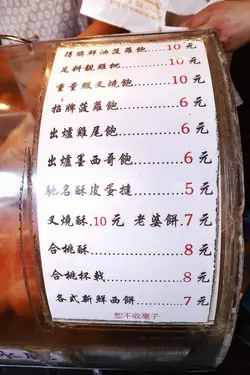 得獎鮮油菠蘿飽......10 元
足料靚雞批......10 元
重量級叉燒飽......10 元
招牌菠蘿飽......6 元
出爐雞尾飽......6 元
出爐墨西哥飽......6 元
馳名酥皮蛋撻......5 元
叉燒酥.10 元 老婆餅.7 元
合桃酥......8 元
合桃杯戟......8 元
各式新鮮西餅......7 元
恕不收毫子